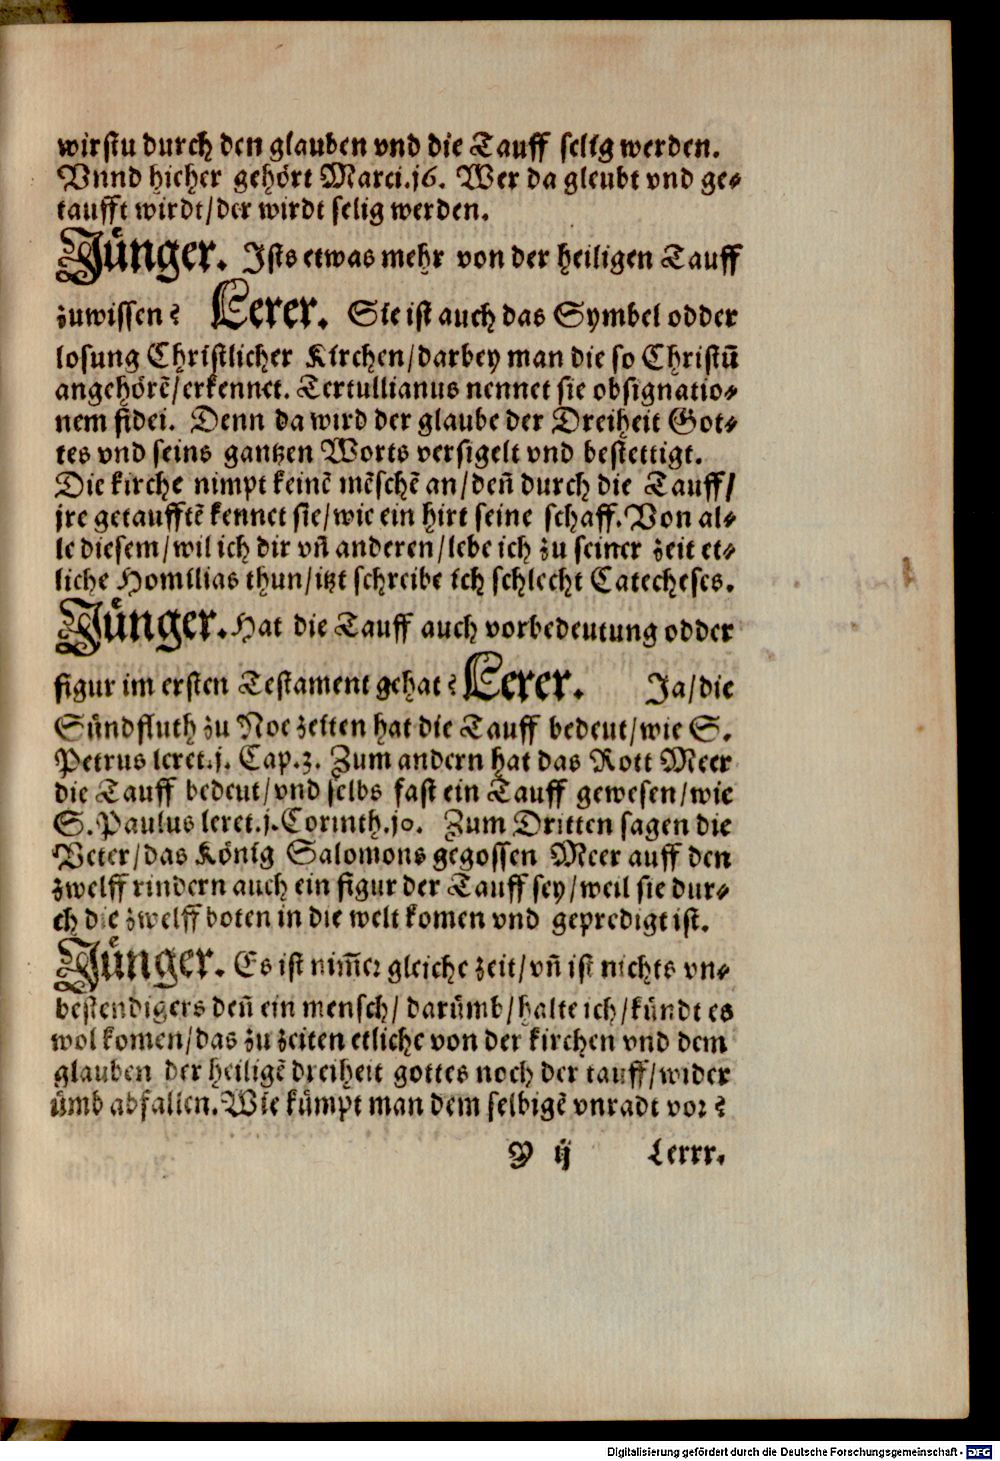 wirstu durch den glauben vnd die Tauff selig werden.
Vnnd hieher gehört Marci.16. Wer da gleubt vnd ge⸗
taufft wirdt/der wirdt selig werden.
Jünger. Ists etwas mehr von der heiligen Tauff
zuwissen? Lerer. Sie ist auch das Symbel odder
losung Christlicher Kirchen/darbey man die so Christū
angehörē/erkennet. Tertullianus nennet sie obsignatio⸗
nem fidei. Denn da wird der glaube der Dreiheit Got⸗
tes vnd seins gantzen Worts versigelt vnd bestettigt.
Die kirche nimpt keinē mēschē an/deñ durch die Tauff/
jre getaufftē kennet sie/wie ein hirt seine schaff. Von al⸗
le diesem/wil ich dir vñ anderen/lebe ich zu seiner zeit et⸗
liche Homilias thun/itzt schreibe ich schlecht Catecheses.
Jünger. Hat die Tauff auch vorbedeutung odder
figur im ersten Testament gehat? Lerer. Ja/die
Sündfluth zu Noe zeiten hat die Tauff bedeut/wie S.
Petrus leret.j. Cap.3. Zum andern hat das Rott Meer
die Tauff bedeut/vnd selbs fast ein Tauff gewesen/wie
S. Paulus leret.j.Corinth.10. Zum Dritten sagen die
Veter/das König Salomons gegossen Meer auff den
zwelff rindern auch ein figur der Tauff sey/weil sie dur⸗
ch die zwelff boten in die welt komen vnd gepredigt ist.
Jünger. Es ist nim̄er gleiche zeit/vñ ist nichts vn⸗
bestendigers deñ ein mensch/ darümb/halte ich/kündt es
wol komen/das zu zeiten etliche von der kirchen vnd dem
glauben der heiligē dreiheit gottes noch der tauff/wider
ümb abfallen. Wie kümpt man dem selbigē vnradt vor?
Y ij Lerrr.
Digitalisierung gefördert durch die Deutsche Forschungsgemeinschaft - DFG